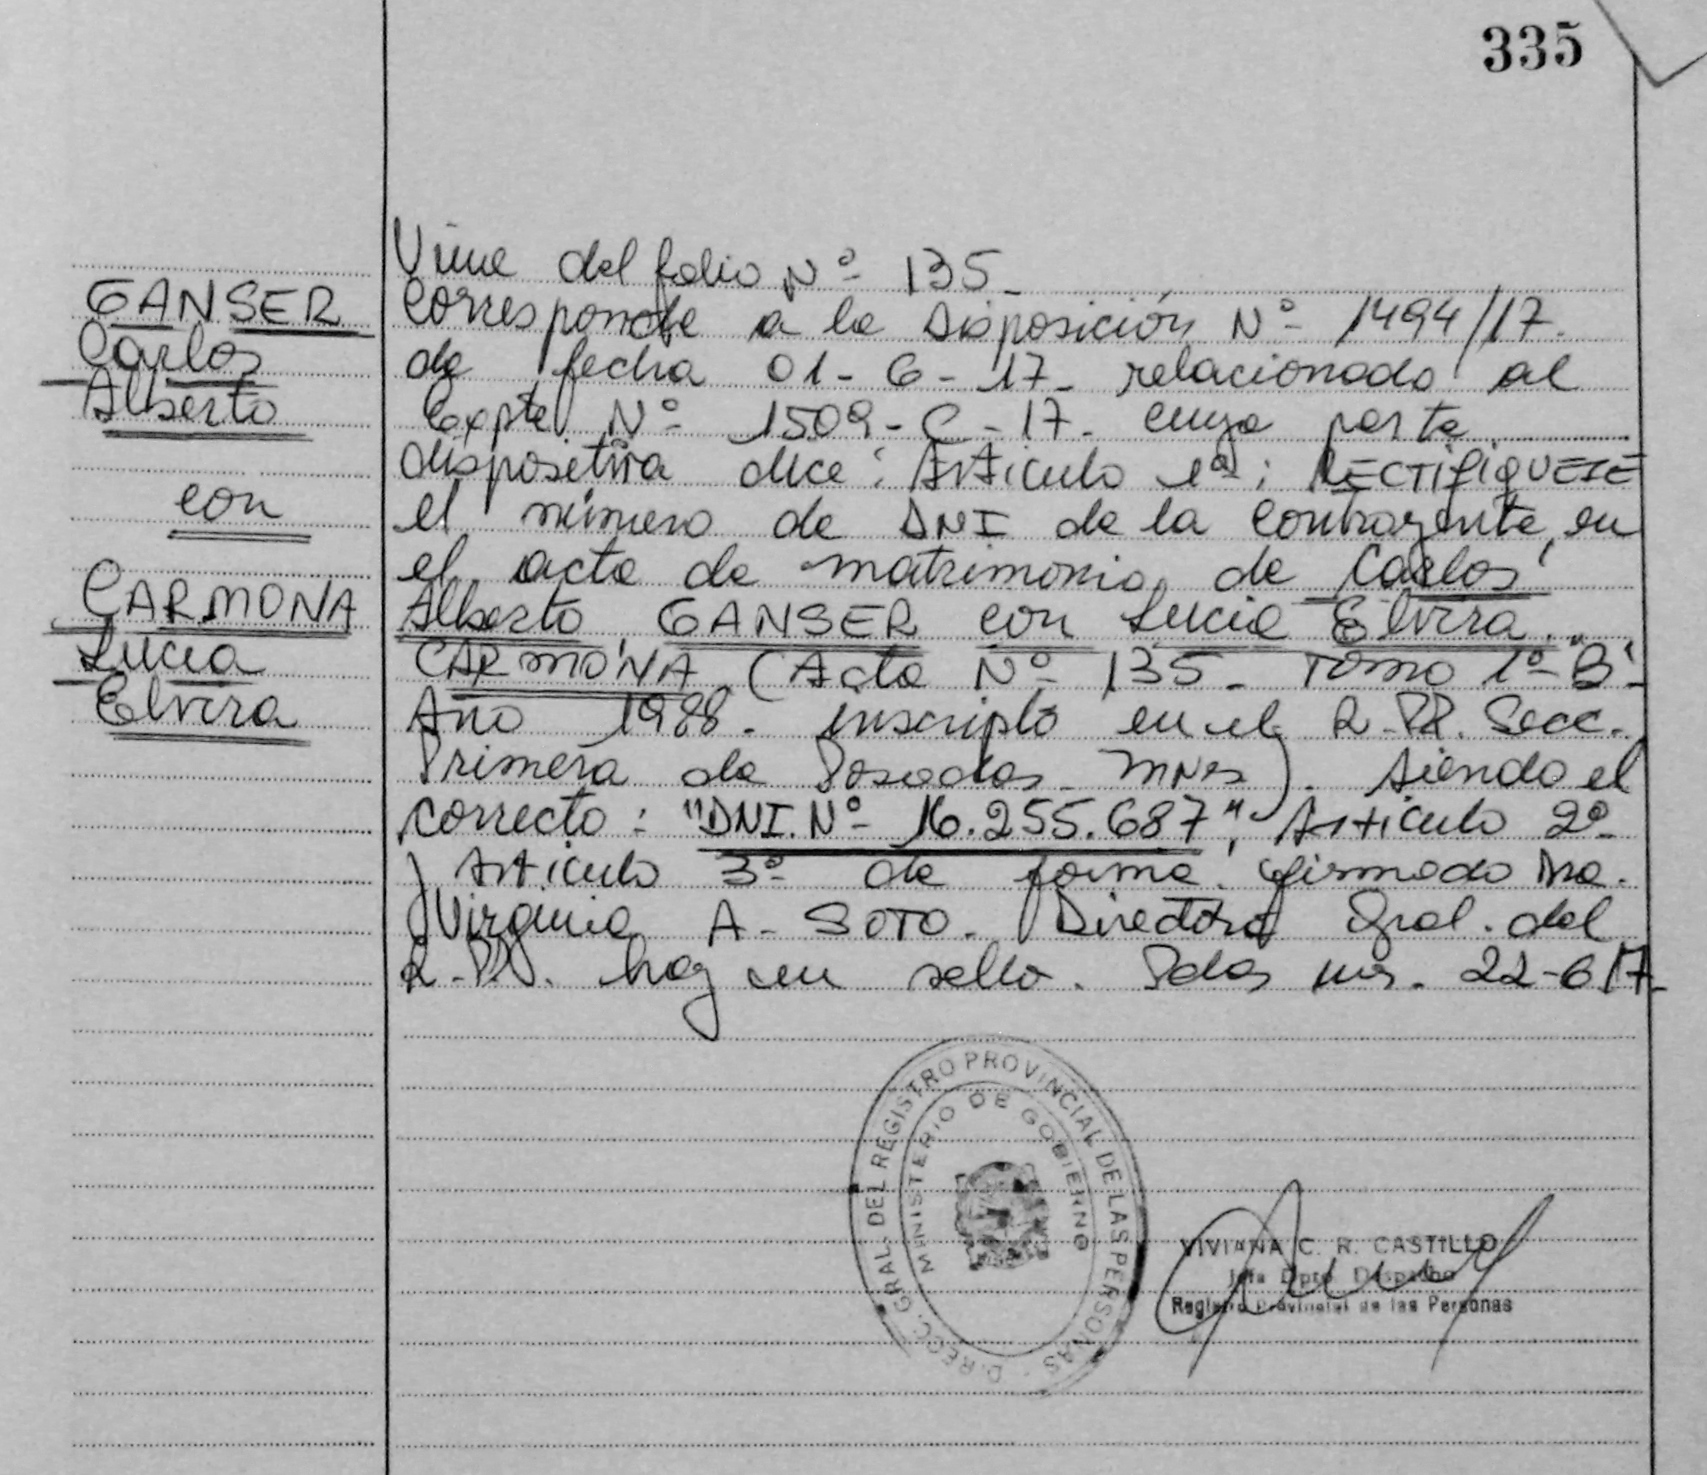 335
GANSER
Carlos
Alberto
con
CARMONA
Lucia
Elvira
Viene del folio Nº 135_
Corresponde a la Disposición Nº 1494/17.
de fecha 01-6-17_ relacionado al
Expte Nº 1509-C-17. cuya parte
dispositiva dice: Artículo 1º: RECTIFIQUESE
el número de DNI de la contrayente, en
el acta de matrimonio de Carlos
Alberto GANSER con Lucia Elvira
CARMONA (Acta Nº 135_ Tomo 1º "B"_
Año 1988. inscripto en el R.PP. Secc.
Primera de Posadas Mnes). siendo el
correcto: "DNI. Nº 16.255.687". Artículo 2º
y Artículo 3º de forma. firmado Dra.
Virginia A. SOTO. Directora Gral. del
R.PP. hay un sello. Pdas Mns. 22-6-17_
DIREC. GRAL. DEL REGISTRO PROVINCIAL DE LAS PERSONAS
MINISTERIO DE GOBIERNO
VIVIANA C. R. CASTILLO
Jefa Dpto Despacho
Registro Provincial de las Personas